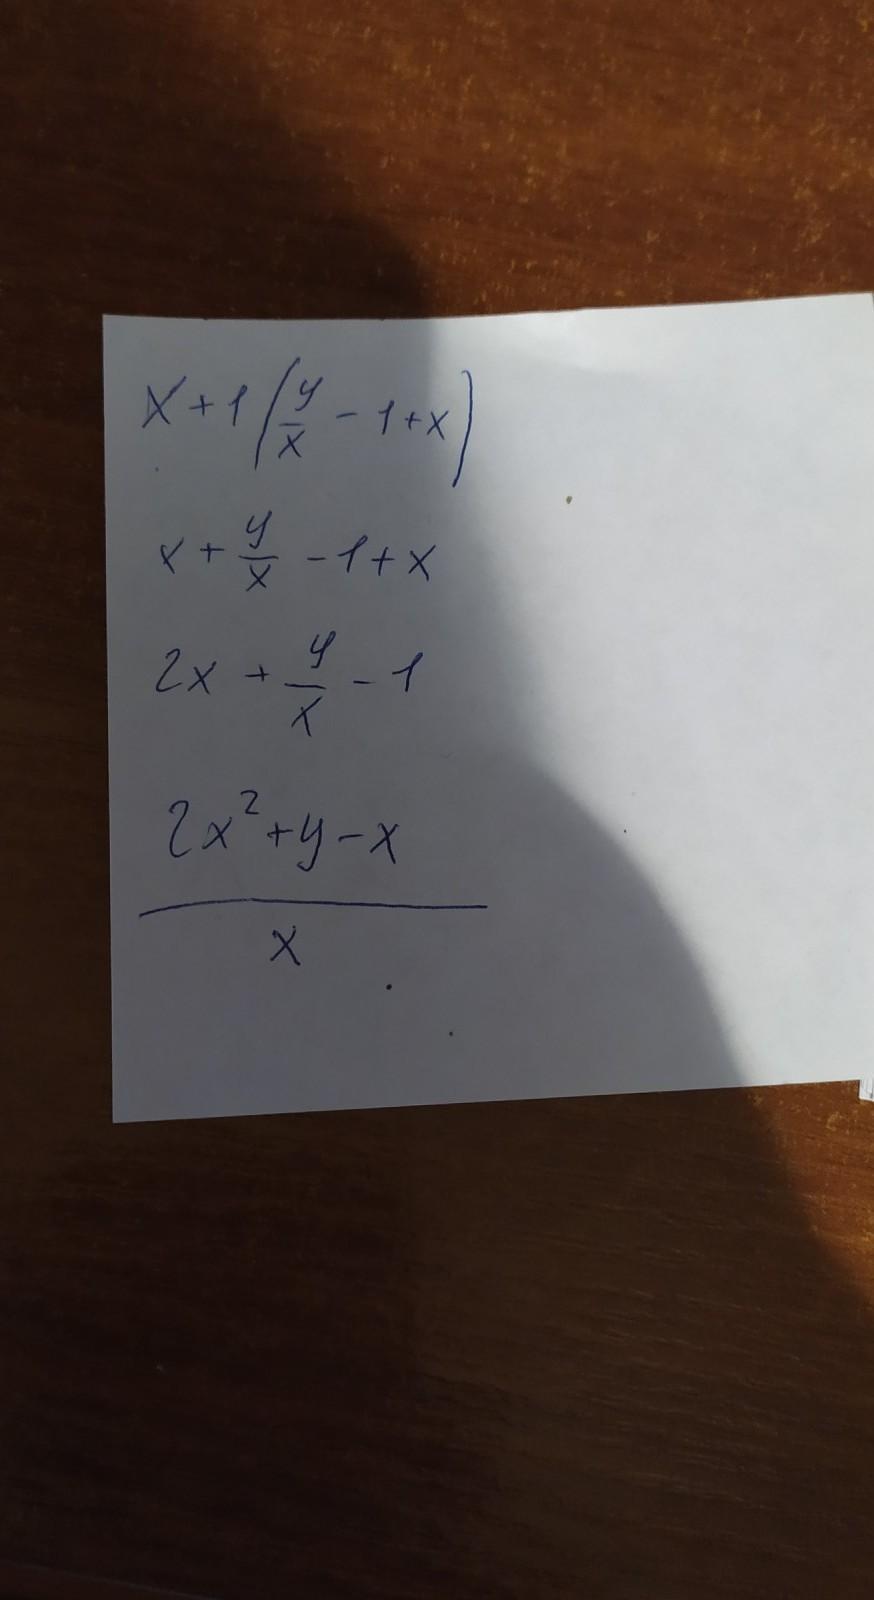 x + 1 (y/x - 1 + x)
x + y/x - 1 + x
2x + y/x - 1
2x² + y - x
x